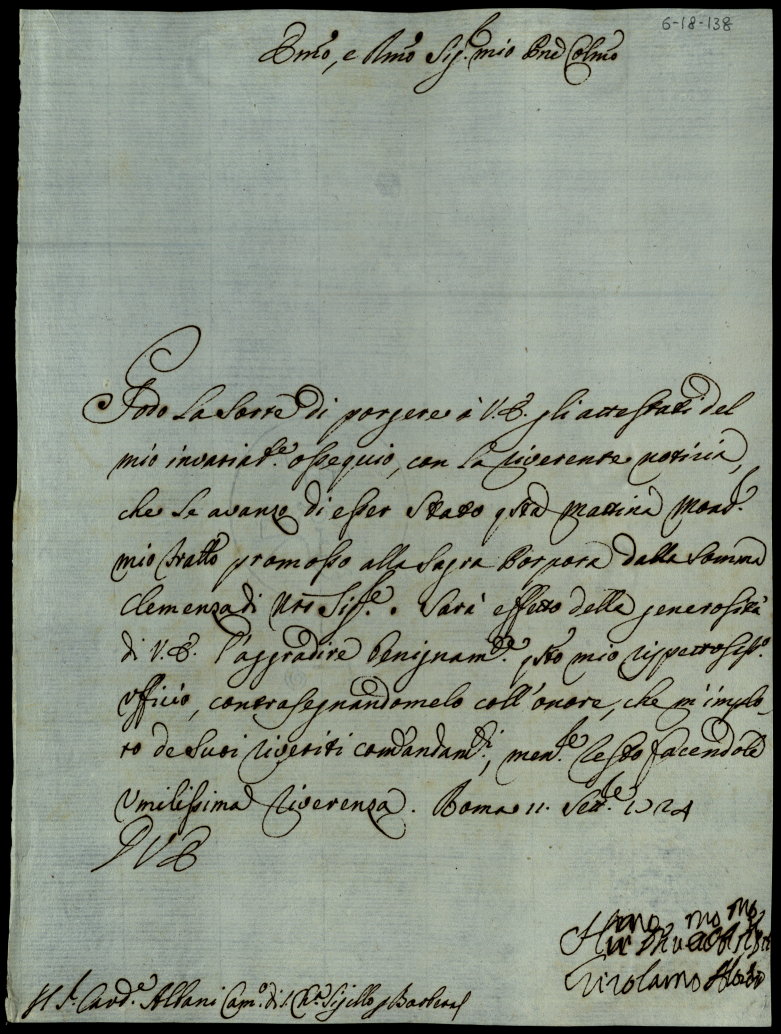 6-18-138
Emo, e Rmo Sig.r mio Pne Colmo
Godo la sorte di porgere à V.E. gli attestati del
mio invariab.e ossequio, con la riverente notizia,
che le avanzo di esser stato qsta mattina Mons.r
mio Fratllo promosso alla Sagra Porpora dalla somma
Clemenza di Nro Sig.re. Sarà effetto della generosità
di V.E. l'aggradire benignam.te qsto mio rispettosiss.o
ufficio, contrasegnandomelo coll'onore, che m'implo-
ro de suoi riveriti comandam.ti, men.e resto facendole
umilissima riverenza. Roma 11. Sett.e 1724
D V E
Girolamo
S.r Card.e Albani Cam.o di S. Ch.a